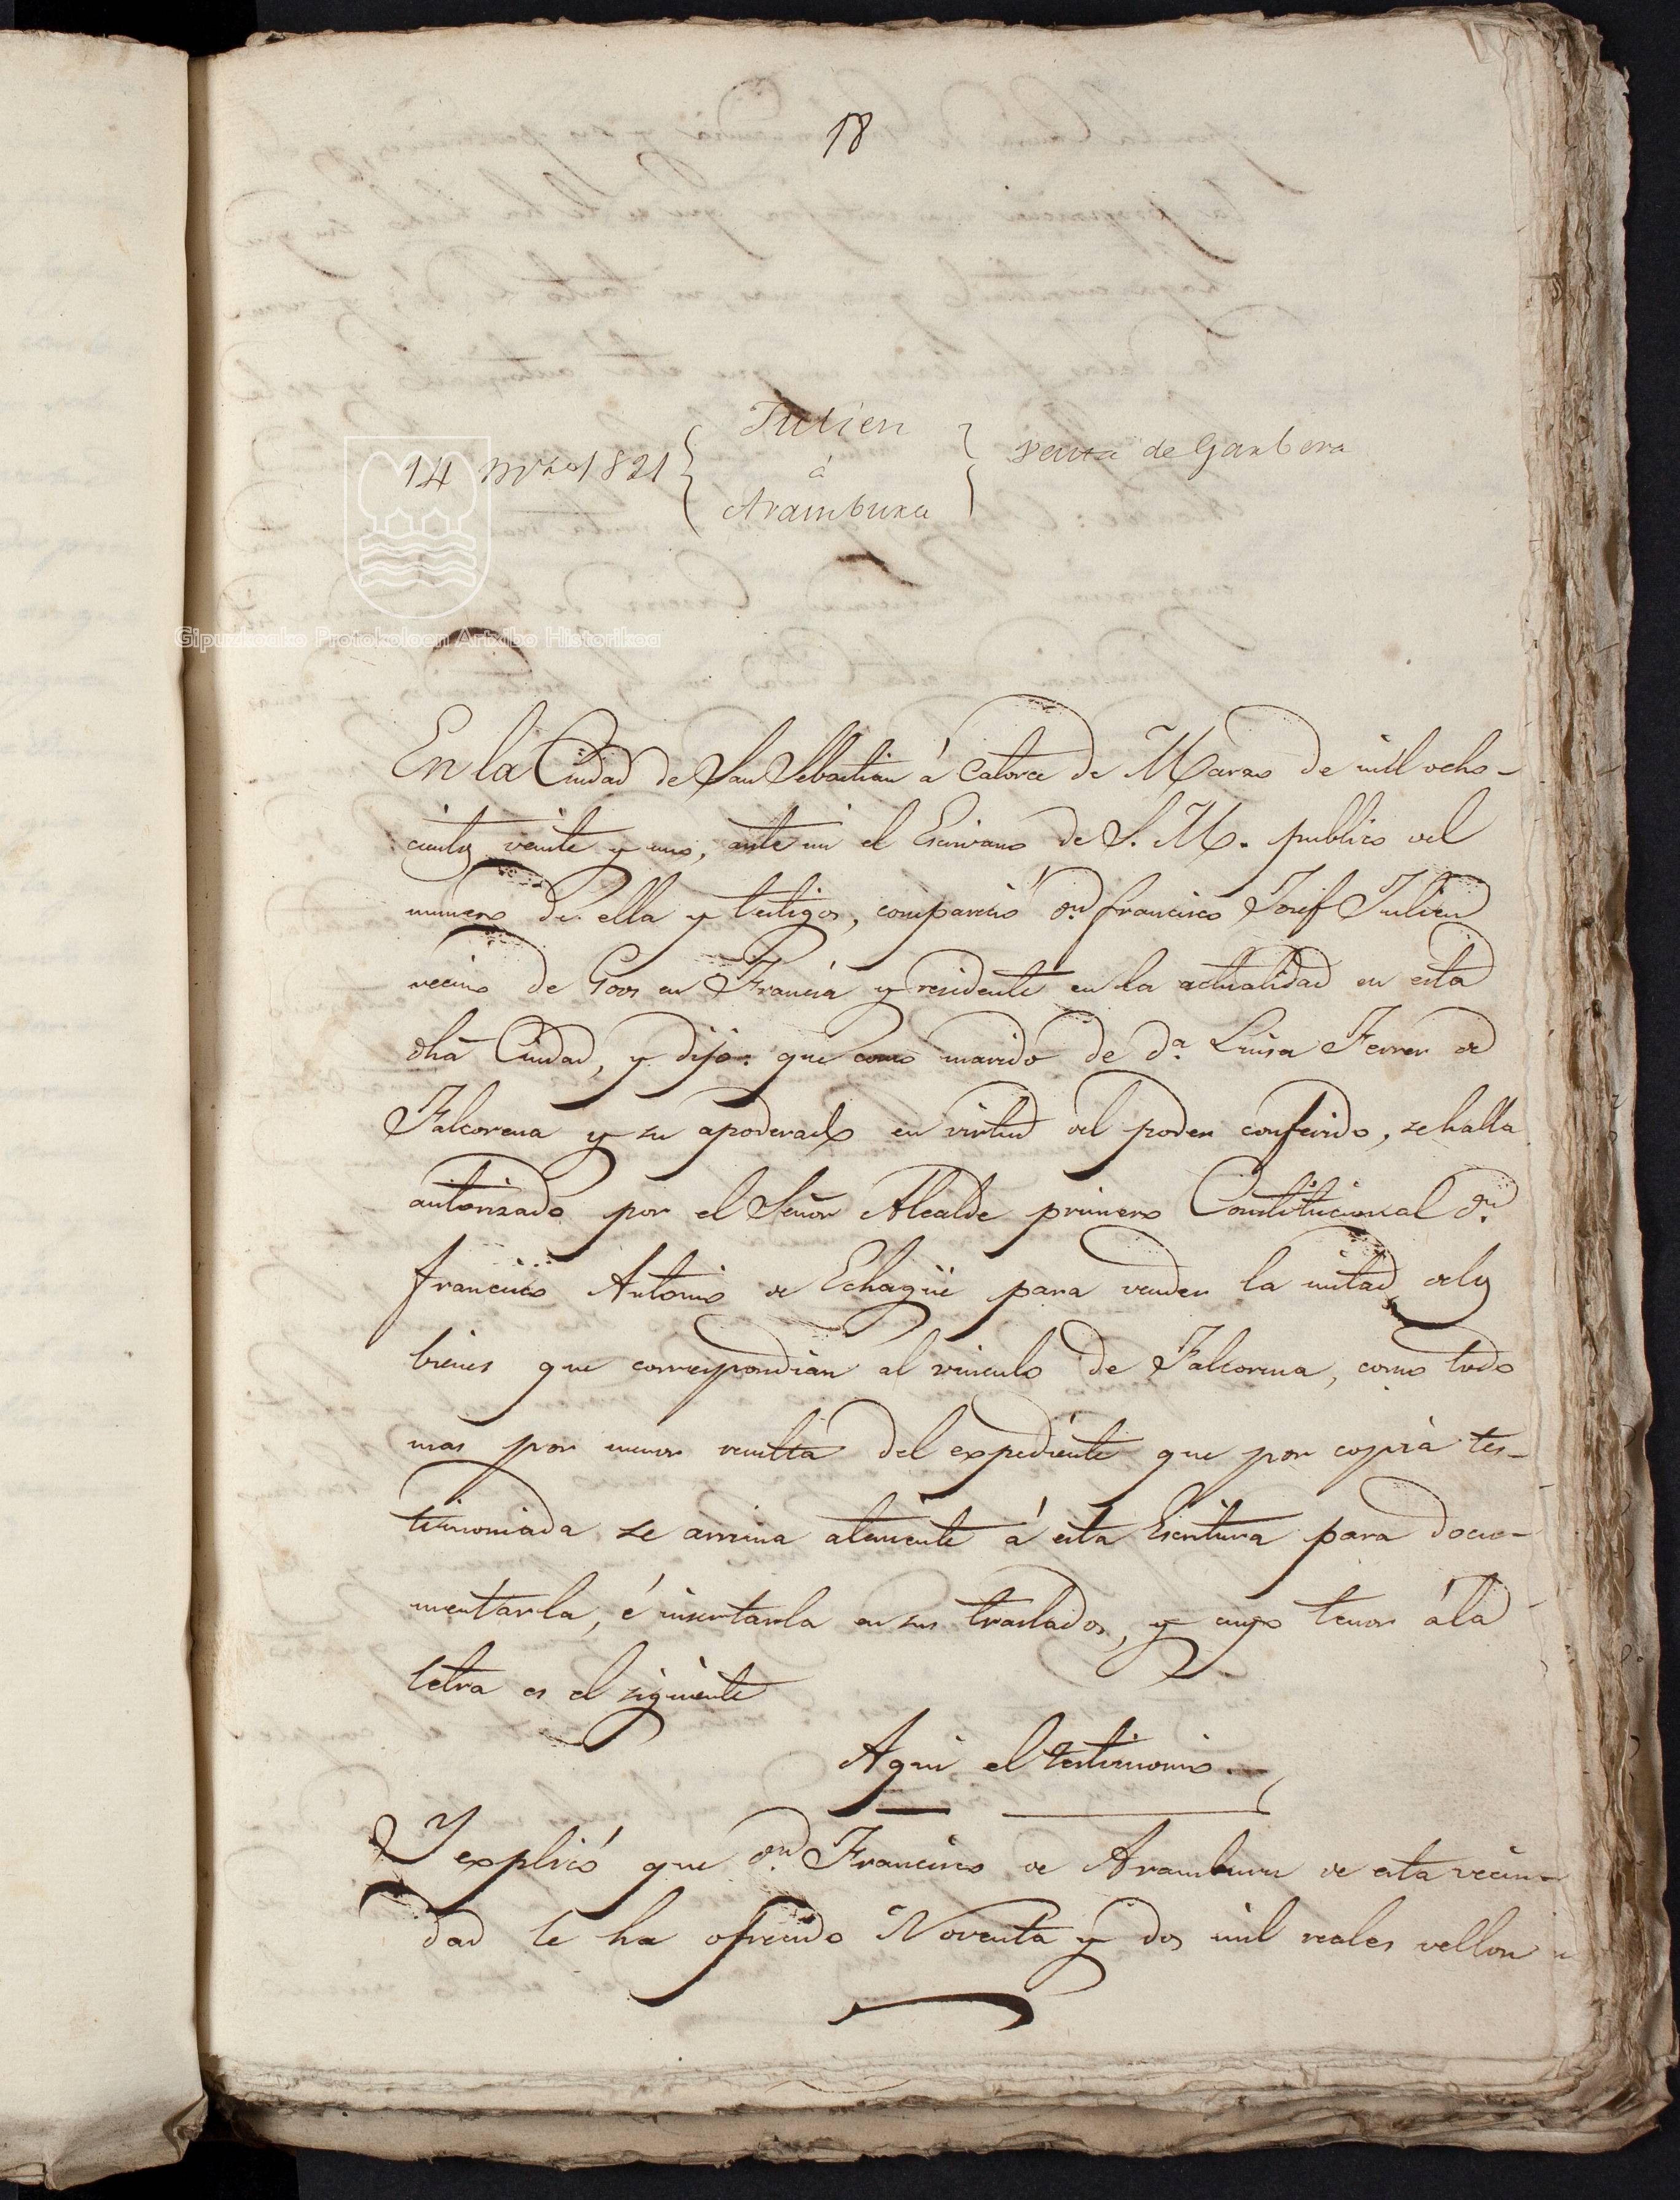 18
14 Mrzo 1821 { Julien á Aramburu } venta de Garbera
Gipuzkoako Protokoloen Artxibo Historikoa
En la Ciudad de San Sebastian á catorce de Marzo de mil ocho-
cientos veinte y uno, ante mi el Escrivano de S. M. publico del
numero de ella y testigos, compareció Dn francisco Josef Julien
vecino de Goos en Francia y residente en la actualidad en esta
dha Ciudad, y dijo: que como marido de Da. Luisa Ferrer de
Falcorena y su apoderado en virtud del poder conferido, se halla
autorizado por el Señor Alcalde primero Constitucional Dn.
francisco Antonio de Echagüe para vender la mitad de los
bienes que correspondian al vinculo de Falcorena, como todo
mas por menor resulta del expediente que por copia tes-
timoniada se arrima atenente á esta Escritura para docu-
mentarla, é insertarla en sus traslados, y cuyo tenor á la
letra es el siguiente
Aqui el testimonio.
Y explicó que Dn. Francisco de Aramburu de esta vecin-
dad le ha ofrecido Noventa y dos mil reales vellon